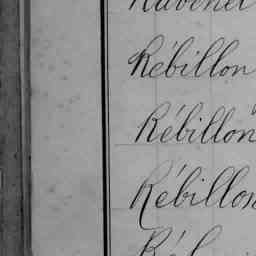 Rébillon
Rébillon
Rébillon